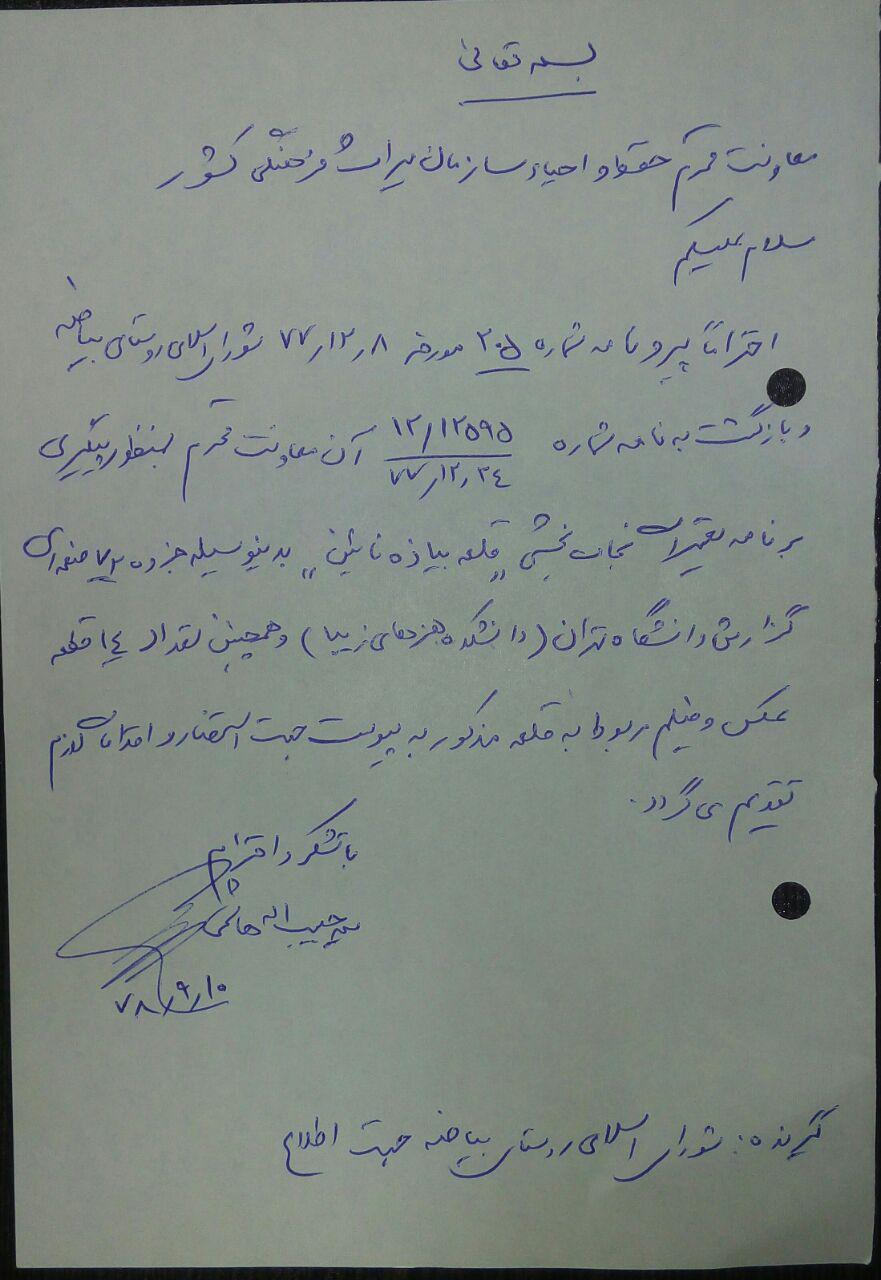 بسمه تعالی
معاونت محترم حفظ و احیاء سازمان میراث فرهنگی کشور
سلام علیکم
احتراماً پیرو نامه شماره ۲۰۵ مورخه ۷۷/۱۲/۸ شورای اسلامی روستای بیاضه
و بازگشت به نامه شماره ۱۲/۱۲۵۹۵ آن معاونت محترم بمنظور پیگیری
۷۷/۱۲/۲۴
برنامه تعمیرات نجات بخشی "قلعه بیاذه نائین" بدینوسیله جزوه ۷۲ صفحه‌ای
گزارش دانشگاه تهران (دانشکده هنرهای زیبا) و همچنین تعداد ۱۴ قطعه
عکس و فیلم مربوط به قلعه مذکور به پیوست جهت استحضار و اقدامات لازم
تقدیم می گردد.
با تشکر و احترام
حبیب اله هاشمی
۷۸/۹/۱۰
گیرنده: شورای اسلامی روستای بیاضه جهت اطلاع